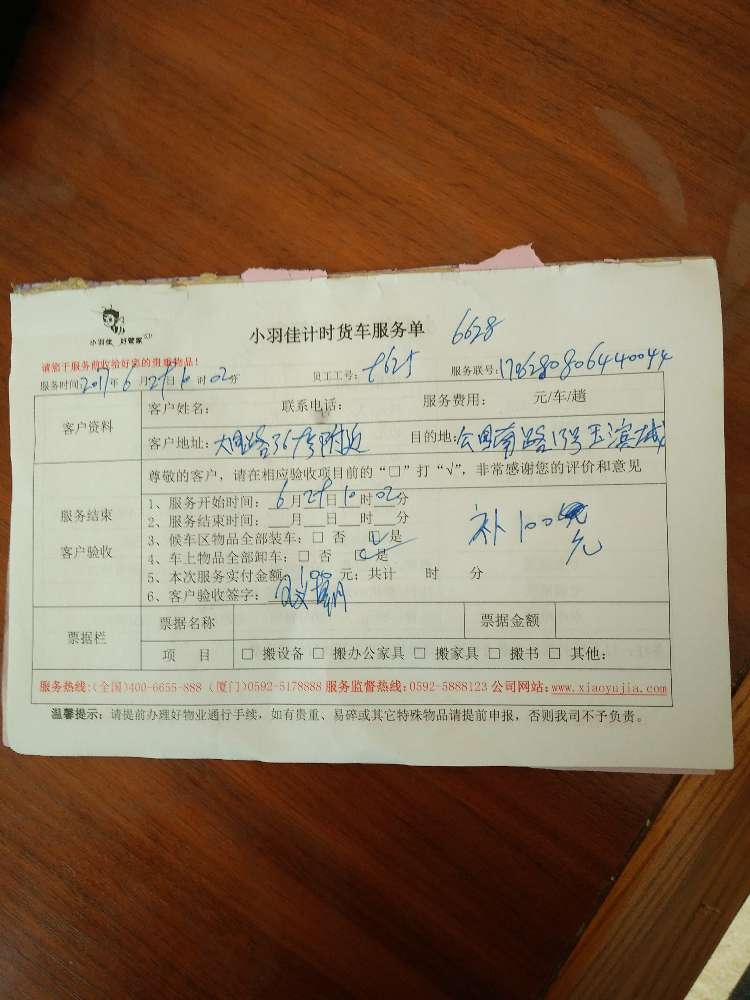 小羽佳 好管家
小羽佳计时货车服务单 6628
请您于服务前收给好您的贵重物品!
服务时间2017年6月29日10时02分 员工工号: 服务联号:
客户资料
客户姓名: 联系电话: 服务费用: 元/车/趟
客户地址: 号附近 目的地: 南路13号玉滨城
尊敬的客户,请在相应验收项目前的“□”打“√”,非常感谢您的评价和意见
服务结束
客户验收
1、服务开始时间:6月29日10时02分
2、服务结束时间:___月___日___时___分
3、候车区物品全部装车:□ 否 □是
4、车上物品全部卸车:□ 否 □是
5、本次服务实付金额 100 元;共计 时 分
6、客户验收签字:
补100元
票据栏
票据名称 票据金额
项 目 □ 搬设备 □ 搬办公家具 □ 搬家具 □ 搬书 □ 其他:
服务热线:(全国)400-6655-888 (厦门)0592-5178888 服务监督热线:0592-5888123 公司网站:www.xiaoyujia.com
温馨提示:请提前办理好物业通行手续,如有贵重、易碎或其它特殊物品请提前申报,否则我司不予负责。